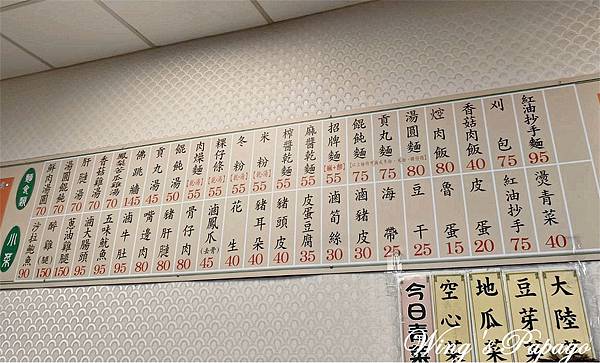 麵食類
鮮肉湯圓 70
湯圓餛飩 70
肝膇湯 70
香菇雞湯 70
鳳梨苦瓜雞湯 70
佛跳牆 145
貢丸湯 45
餛飩湯 50
肉燥麵 (乾/湯) 55
粿仔條 (乾/湯) 55
冬粉 (乾/湯) 55
米粉 (乾/湯) 55
榨醬乾麵 55
麻醬乾麵 55
招牌麵 55
餛飩麵 75
貢丸麵 75
湯圓麵 80
焢肉飯 80
香菇肉飯 40
刈包 75
紅油抄手麵 95
小菜
沙拉鮑魚 90
醉雞(腿) 150
蔥油雞(腿) 150
滷大腸頭 95
五味魷魚 95
滷牛肚 90
嘴邊肉 80
豬肝膇 80
骨仔肉 80
滷鳳爪 45
花生 40
豬耳朵 40
豬頭皮 40
皮蛋豆腐 35
滷筍絲 30
滷豬皮 30
海帶 25
豆干 25
魯蛋 15
皮蛋 20
紅油抄手 75
燙青菜 40
今日青菜
空心菜
地瓜菜
豆芽菜
大陸
Wing's Papago